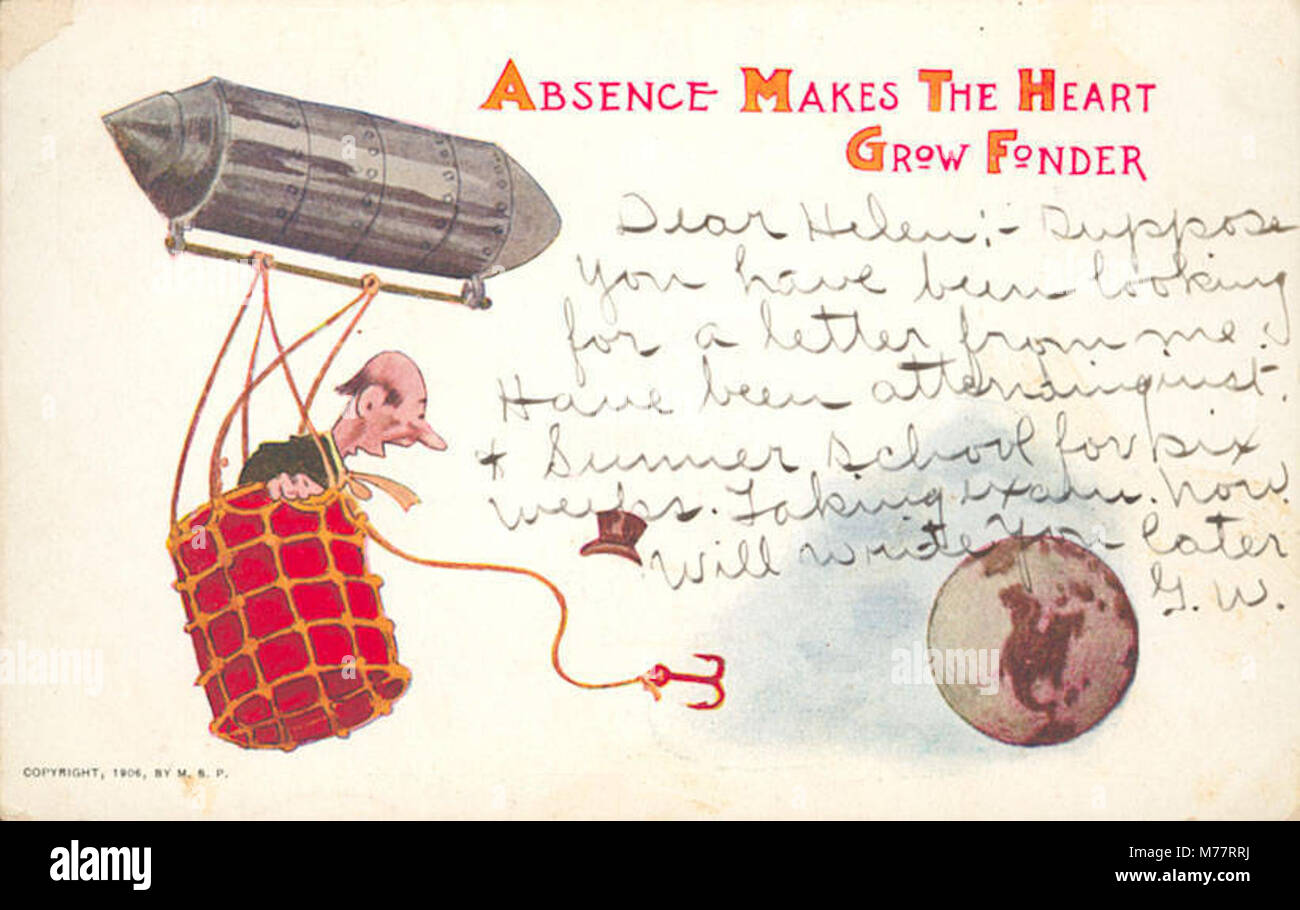 ABSENCE MAKES THE HEART
GROW FONDER
Dear Helen:- Suppose
you have been looking
for a letter from me.
Have been attending inst.
+ Summer school for six
weeks. Taking exam. now.
Will write you later
G. W.
COPYRIGHT, 1906, BY M. S. P.
alamy
alamy
alamy
a
a
a
alamy
Image ID: M77RRJ
www.alamy.com